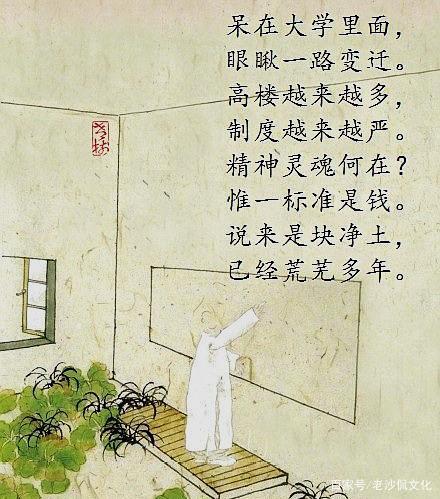 呆在大学里面，
眼瞅一路变迁。
高楼越来越多，
制度越来越严。
精神灵魂何在？
惟一标准是钱。
说来是块净土，
已经荒芜多年。
百家号/老沙佩文化